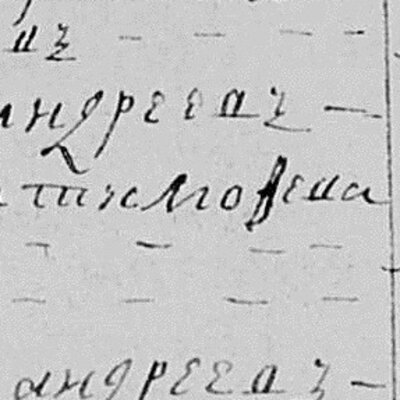 въ - - - -
андреевъ —
тимофева
андреевъ —